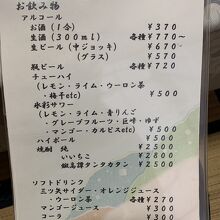 お飲み物
アルコール
お酒（1合） ￥370
生酒（300ml） 各種￥770～
生ビール（中ジョッキ） ￥670
（グラス） ￥570
瓶ビール 各種￥720
チューハイ
（レモン・ライム・ウーロン茶
・梅干etc） ￥500
氷彩サワー
（レモン・ライム・青りんご
・グレープフルーツ・巨峰・ゆず
・マンゴー・カルピスetc）￥500
ハイボール ￥500
焼酎 純 ￥2500
いいちこ ￥2800
鍛高譚タンタカタン ￥2500
ソフトドリンク
三ツ矢サイダー・オレンジジュース
・ウーロン茶 各種￥270
マンゴージュース ￥300
コーラ ￥300